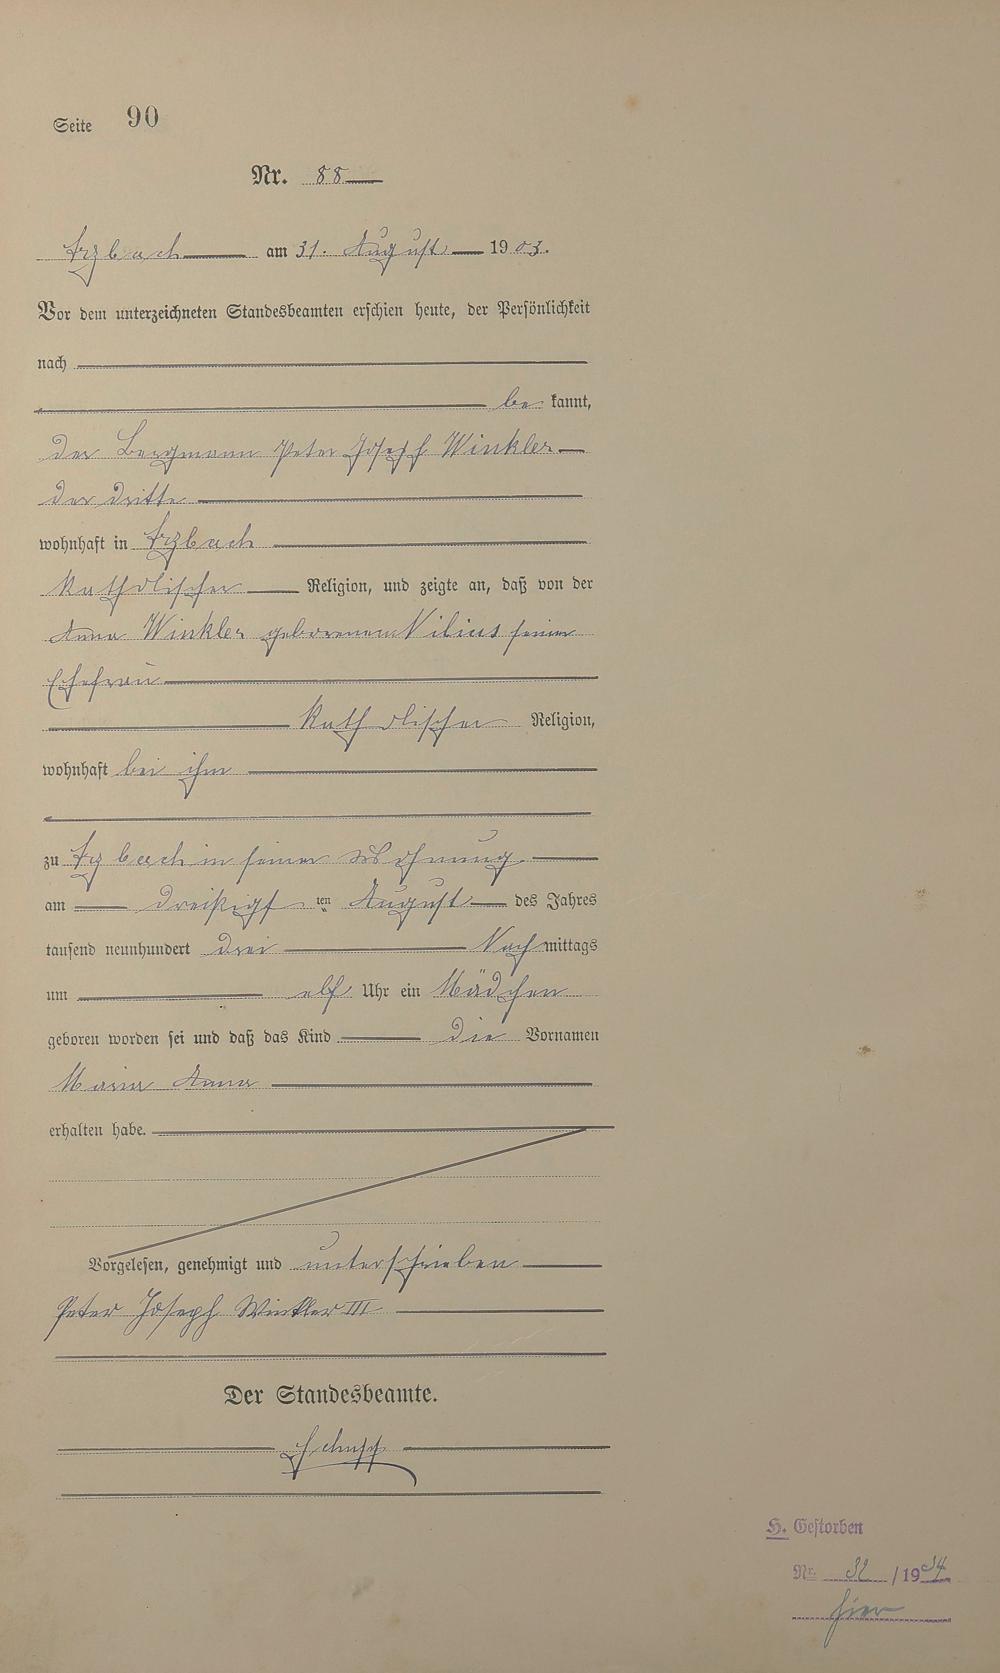 Seite 90
Nr. 88
Arzbach am 31. August 1903.
Vor dem unterzeichneten Standesbeamten erschien heute, der Persönlichkeit
nach
be kannt,
der Bergmann Peter Joseph Winkler
der dritte
wohnhaft in Arzbach
katholischer Religion, und zeigte an, daß von der
Anna Winkler geborenen Vilius seiner
Ehefrau
katholischer Religion,
wohnhaft bei ihm
zu Arzbach in seiner Wohnung
am dreißigsten August des Jahres
tausend neunhundert drei Nachmittags
um elf Uhr ein Mädchen
geboren worden sei und daß das Kind die Vornamen
Maria Anna
erhalten habe.
Vorgelesen, genehmigt und unterschrieben
Peter Joseph Winkler III
Der Standesbeamte.
H. Gestorben
Nr. 32 /1934
hier